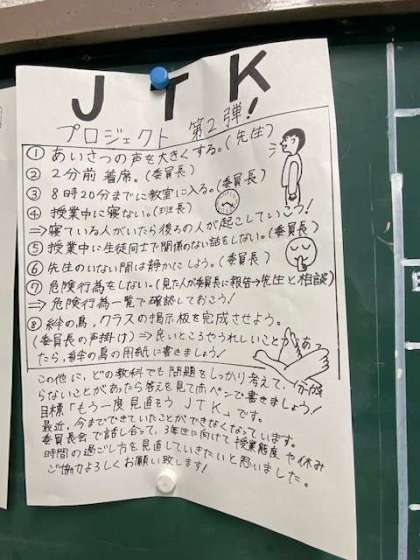 JTK
プロジェクト 第2弾!
① あいさつの声を大きくする。(先生)
② 2分前着席。(委員長)
③ 8時20分までに教室に入る。(委員長)
④ 授業中に寝ない。(班長)
⇒寝ている人がいたら後ろの人が起こしていこう!
⑤ 授業中に生徒同士で関係のない話をしない。(委員長)
⑥ 先生のいない間は静かにしよう。(委員長)
⑦ 危険行為をしない。(見た人が委員長に報告→先生と相談)
⇒危険行為一覧で確認しておこう!
⑧ 絆の鳥、クラスの掲示板を完成させよう。
(委員長の声掛け)⇒良いところやうれしいことがあっ
たら、絆の鳥の用紙に書きましょう!
この他に、どの教科でも問題をしっかり考えて、分か
らないことがあったら答えを見て赤ペンで書きましょう!
目標「もう一度見直そう JTK」です。
最近、今までできていたことができなくなっています。
委員長会で話し合って、3年生に向けて授業態度や休み
時間の過ごし方を見直していきたいと思いました。
ご協力よろしくお願い致します!